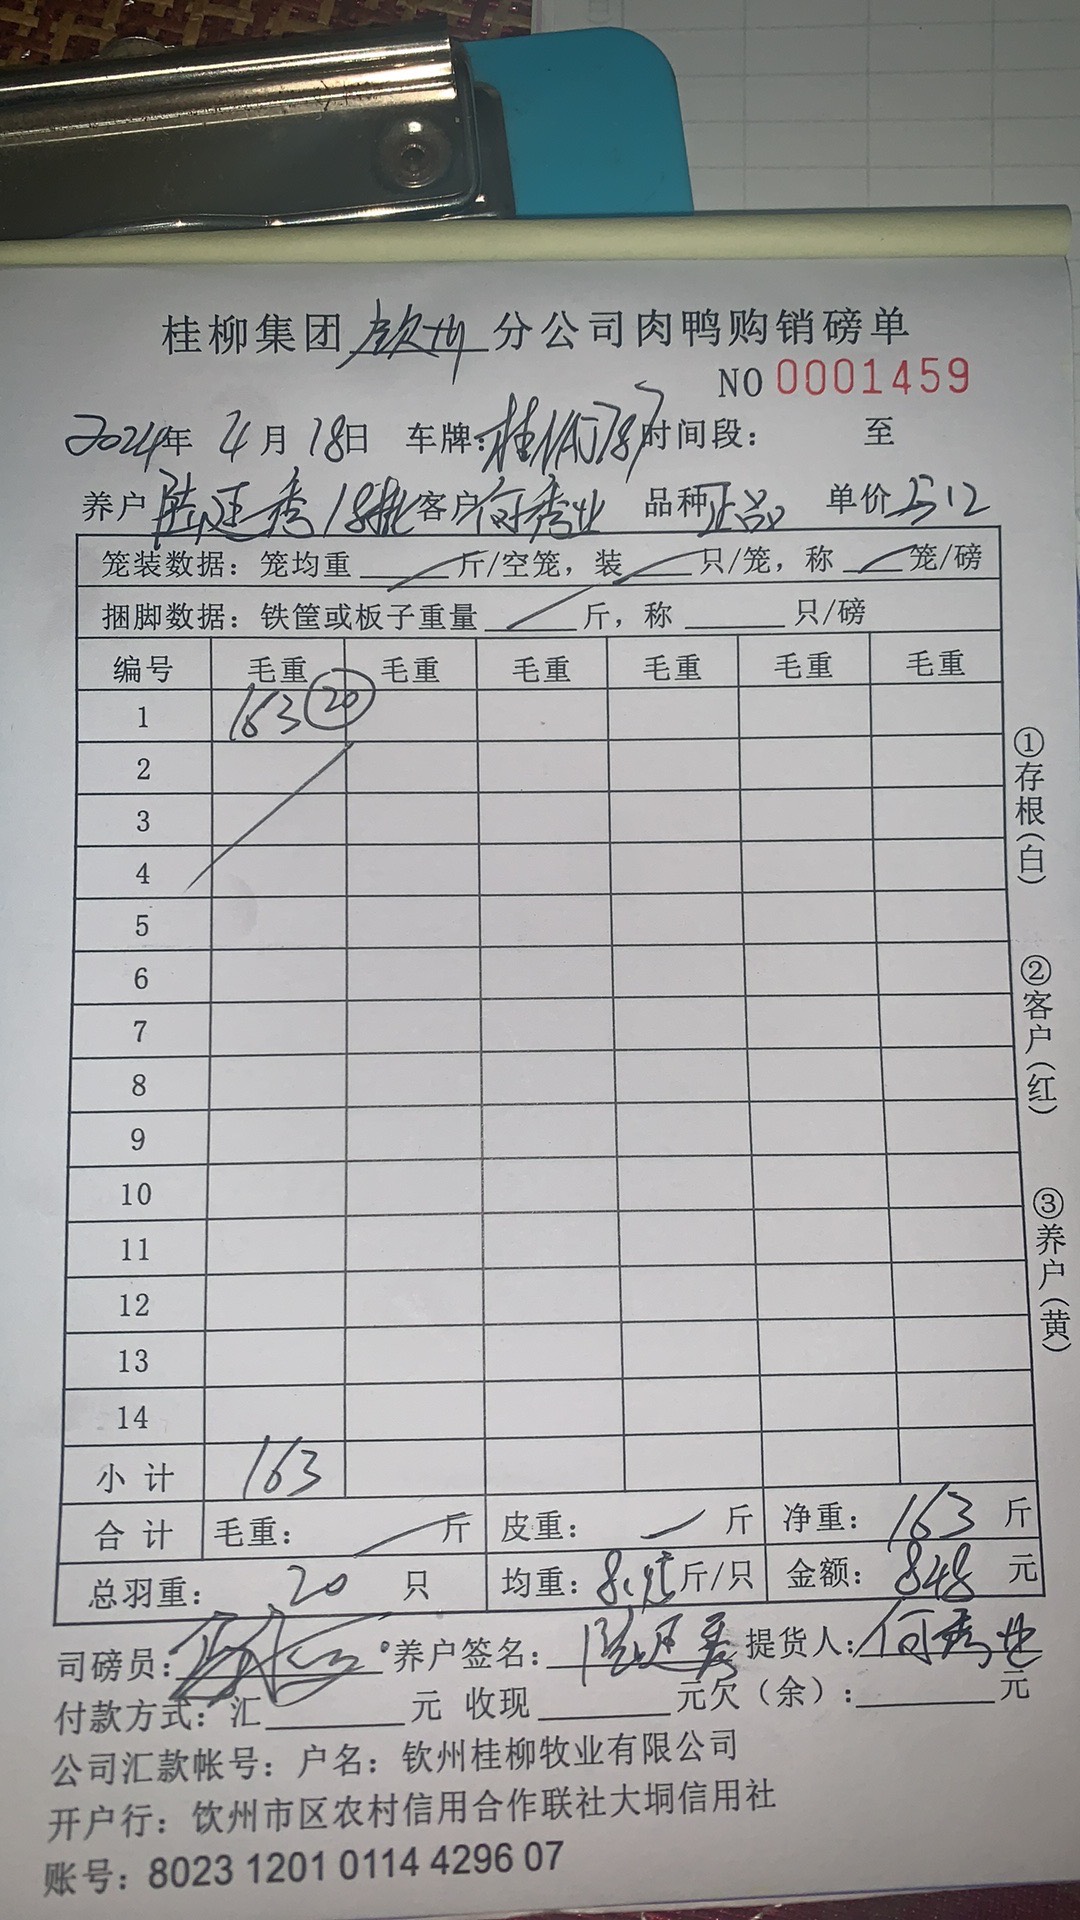 桂柳集团 钦州 分公司肉鸭购销磅单
NO 0001459
2024年 4月 18日 车牌: 桂 时间段: 至
养户 陆廷秀 18批 客户 何秀业 品种 正品 单价
笼装数据: 笼均重 斤/空笼, 装 只/笼, 称 笼/磅
捆脚数据: 铁筐或板子重量 斤, 称 只/磅
编号 毛重 毛重 毛重 毛重 毛重 毛重
1 163 20
2
3
4
5
6
7
8
9
10
11
12
13
14
小 计 163
合 计 毛重: 斤 皮重: 斤 净重: 163 斤
总羽重: 20 只 均重: 斤/只 金额: 848 元
司磅员: 养户签名: 陆廷秀 提货人: 何秀业
付款方式: 汇 元 收现 元欠(余): 元
公司汇款帐号: 户名: 钦州桂柳牧业有限公司
开户行: 饮州市区农村信用合作联社大垌信用社
账号: 8023 1201 0114 4296 07
①存根(白)
②客户(红)
③养户(黄)